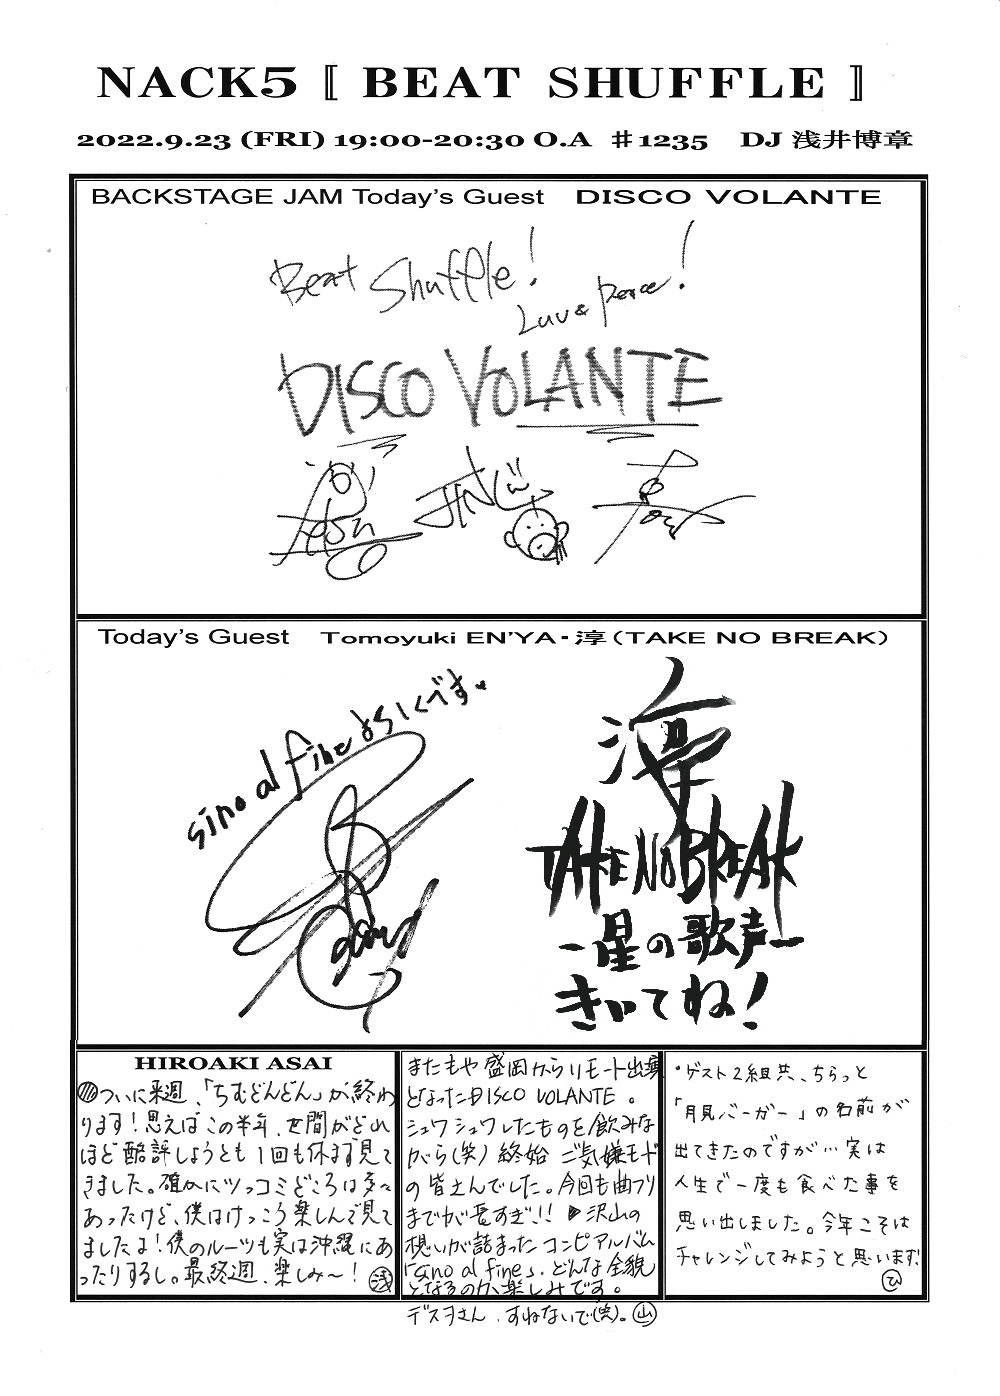 NACK5 〚 BEAT SHUFFLE 〛
2022.9.23 (FRI) 19:00-20:30 O.A ♯1235 DJ 浅井博章
BACKSTAGE JAM Today's Guest DISCO VOLANTE
Beat Shuffle!
Luv & peace!
DISCO VOLANTE
JIN
Today's Guest Tomoyuki EN'YA・淳(TAKE NO BREAK)
sino al fine よろしくです。
淳
TAKE NO BREAK
-星の歌声-
きいてね!
HIROAKI ASAI
ついに来週、「ちむどんどん」が終わ
ります!思えばこの半年、世間がどれ
ほど酷評しようとも1回も休まず見て
きました。確かにツッコミどころは多々
あったけど、僕はけっこう楽しんで見て
ましたよ!僕のルーツも実は沖縄にあ
ったりするし。最終週、楽しみ〜! 浅
またもや盛岡からリモート出演
となったDISCO VOLANTE。
シュワシュワしたものを飲みな
がら(笑)終始ご気嫌モード
の皆さんでした。今回も曲フリ
までが長すぎ!! ▶沢山の
想いが詰まったコンピアルバム
「sino al fine」、どんな全貌
となるのか、楽しみです。
デスヲさん、すねないで(笑)。山
・ゲスト2組共、ちらっと
「月見バーガー」の名前が
出てきたのですが…実は
人生で一度も食べた事を
思い出しました。今年こそは
チャレンジしてみようと思います。
ひ